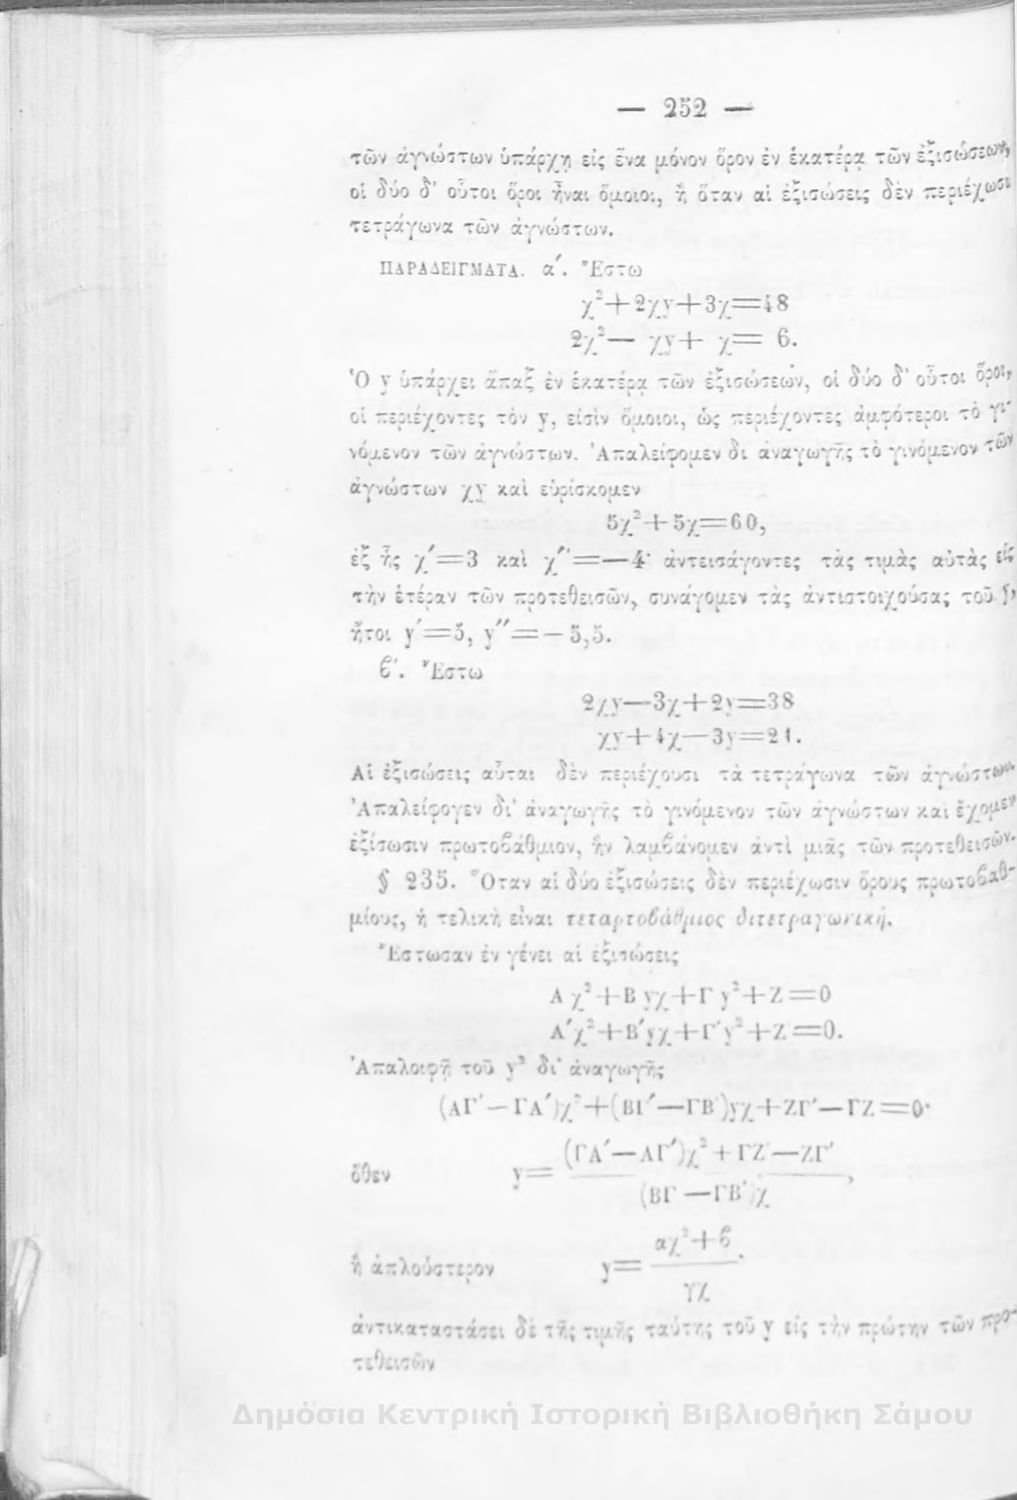 — 252 —
τῶν ἀγνώστων ὑπάρχῃ εἰς ἕνα μόνον ὅρον ἐν ἑκατέρᾳ τῶν ἐξισώσεων,
οἱ δύο δ' οὗτοι ὅροι ἦναι ὅμοιοι, ἢ ὅταν αἱ ἐξισώσεις δὲν περιέχωσι
τετράγωνα τῶν ἀγνώστων.
ΠΑΡΑΔΕΙΓΜΑΤΑ. α΄. Ἔστω
χ²+2χy+3χ=48
2χ²— χy+ χ= 6.
Ὁ y ὑπάρχει ἅπαξ ἐν ἑκατέρᾳ τῶν ἐξισώσεων, οἱ δύο δ' οὗτοι ὅροι,
οἱ περιέχοντες τὸν y, εἰσὶν ὅμοιοι, ὡς περιέχοντες ἀμφότεροι τὸ γι-
νόμενον τῶν ἀγνώστων. Ἀπαλείφομεν δι ἀναγωγῆς τὸ γινόμενον τῶν
ἀγνώστων χy καὶ εὑρίσκομεν
5χ²+5χ=60,
ἐξ ἧς χ΄=3 καὶ χ΄΄=—4· ἀντεισάγοντες τὰς τιμὰς αὐτὰς εἰς
τὴν ἑτέραν τῶν προτεθεισῶν, συνάγομεν τὰς ἀντιστοιχούσας τοῦ y,
ἤτοι y΄=5, y΄΄=—5,5.
ϐ΄. Ἔστω
2χy—3χ+2y=38
χy+4χ—3y=21.
Αἱ ἐξισώσεις αὗται δὲν περιέχουσι τὰ τετράγωνα τῶν ἀγνώστων.
Ἀπαλείφογεν δι' ἀναγωγῆς τὸ γινόμενον τῶν ἀγνώστων καὶ ἔχομεν
ἐξίσωσιν πρωτοϐάθμιον, ἣν λαμϐάνομεν ἀντὶ μιᾶς τῶν προτεθεισῶν.
§ 235. Ὅταν αἱ δύο ἐξισώσεις δὲν περιέχωσιν ὅρους πρωτοϐαθ-
μίους, ἡ τελικὴ εἶναι τεταρτοϐάθμιος διτετραγωνική.
Ἔστωσαν ἐν γένει αἱ ἐξισώσεις
Αχ²+Βyχ+Γy²+Ζ=0
Α΄χ²+Β΄yχ+Γ΄y²+Ζ΄=0.
Ἀπαλοιφῇ τοῦ y² δι' ἀναγωγῆς
(ΑΓ΄—ΓΑ΄)χ²+(ΒΓ΄—ΓΒ΄)yχ+ΖΓ΄—ΓΖ΄=0·
ὅθεν y= (ΓΑ΄—ΑΓ΄)χ²+ΓΖ΄—ΖΓ΄ ,
(ΒΓ΄—ΓΒ΄)χ
ἢ ἁπλούστερον y= αχ²+ϐ .
γχ
ἀντικαταστάσει δὲ τῆς τιμῆς ταύτης τοῦ y εἰς τὴν πρώτην τῶν προ-
τεθεισῶν
Δημόσια Κεντρική Ιστορική Βιβλιοθήκη Σάμου